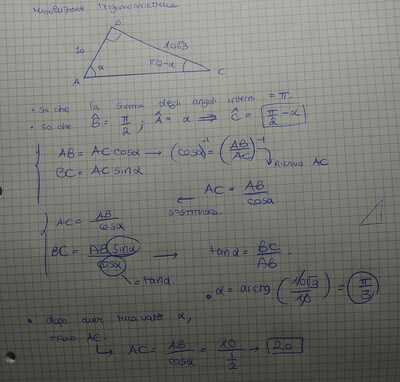 Risoluzione trigonometrica
B
10
10√3
α
π/2-α
A
C
• so che la somma degli angoli interni = π.
• so che B̂ = π/2 ; Â = α ⟹ Ĉ = π/2 - α
AB = AC cosα → (cosα)⁻¹ = (AB/AC)⁻¹
BC = AC sinα
ricavo AC
AC = AB/cosα
← sostituisco
AC = AB/cosα
BC = AB sinα/cosα → tanα = BC/AB.
= tanα
• α = arctg (10√3/10) = π/3
• dopo aver ricavato α,
trovo AC.
↳ AC = AB/cosα = 10/(1/2) → 20